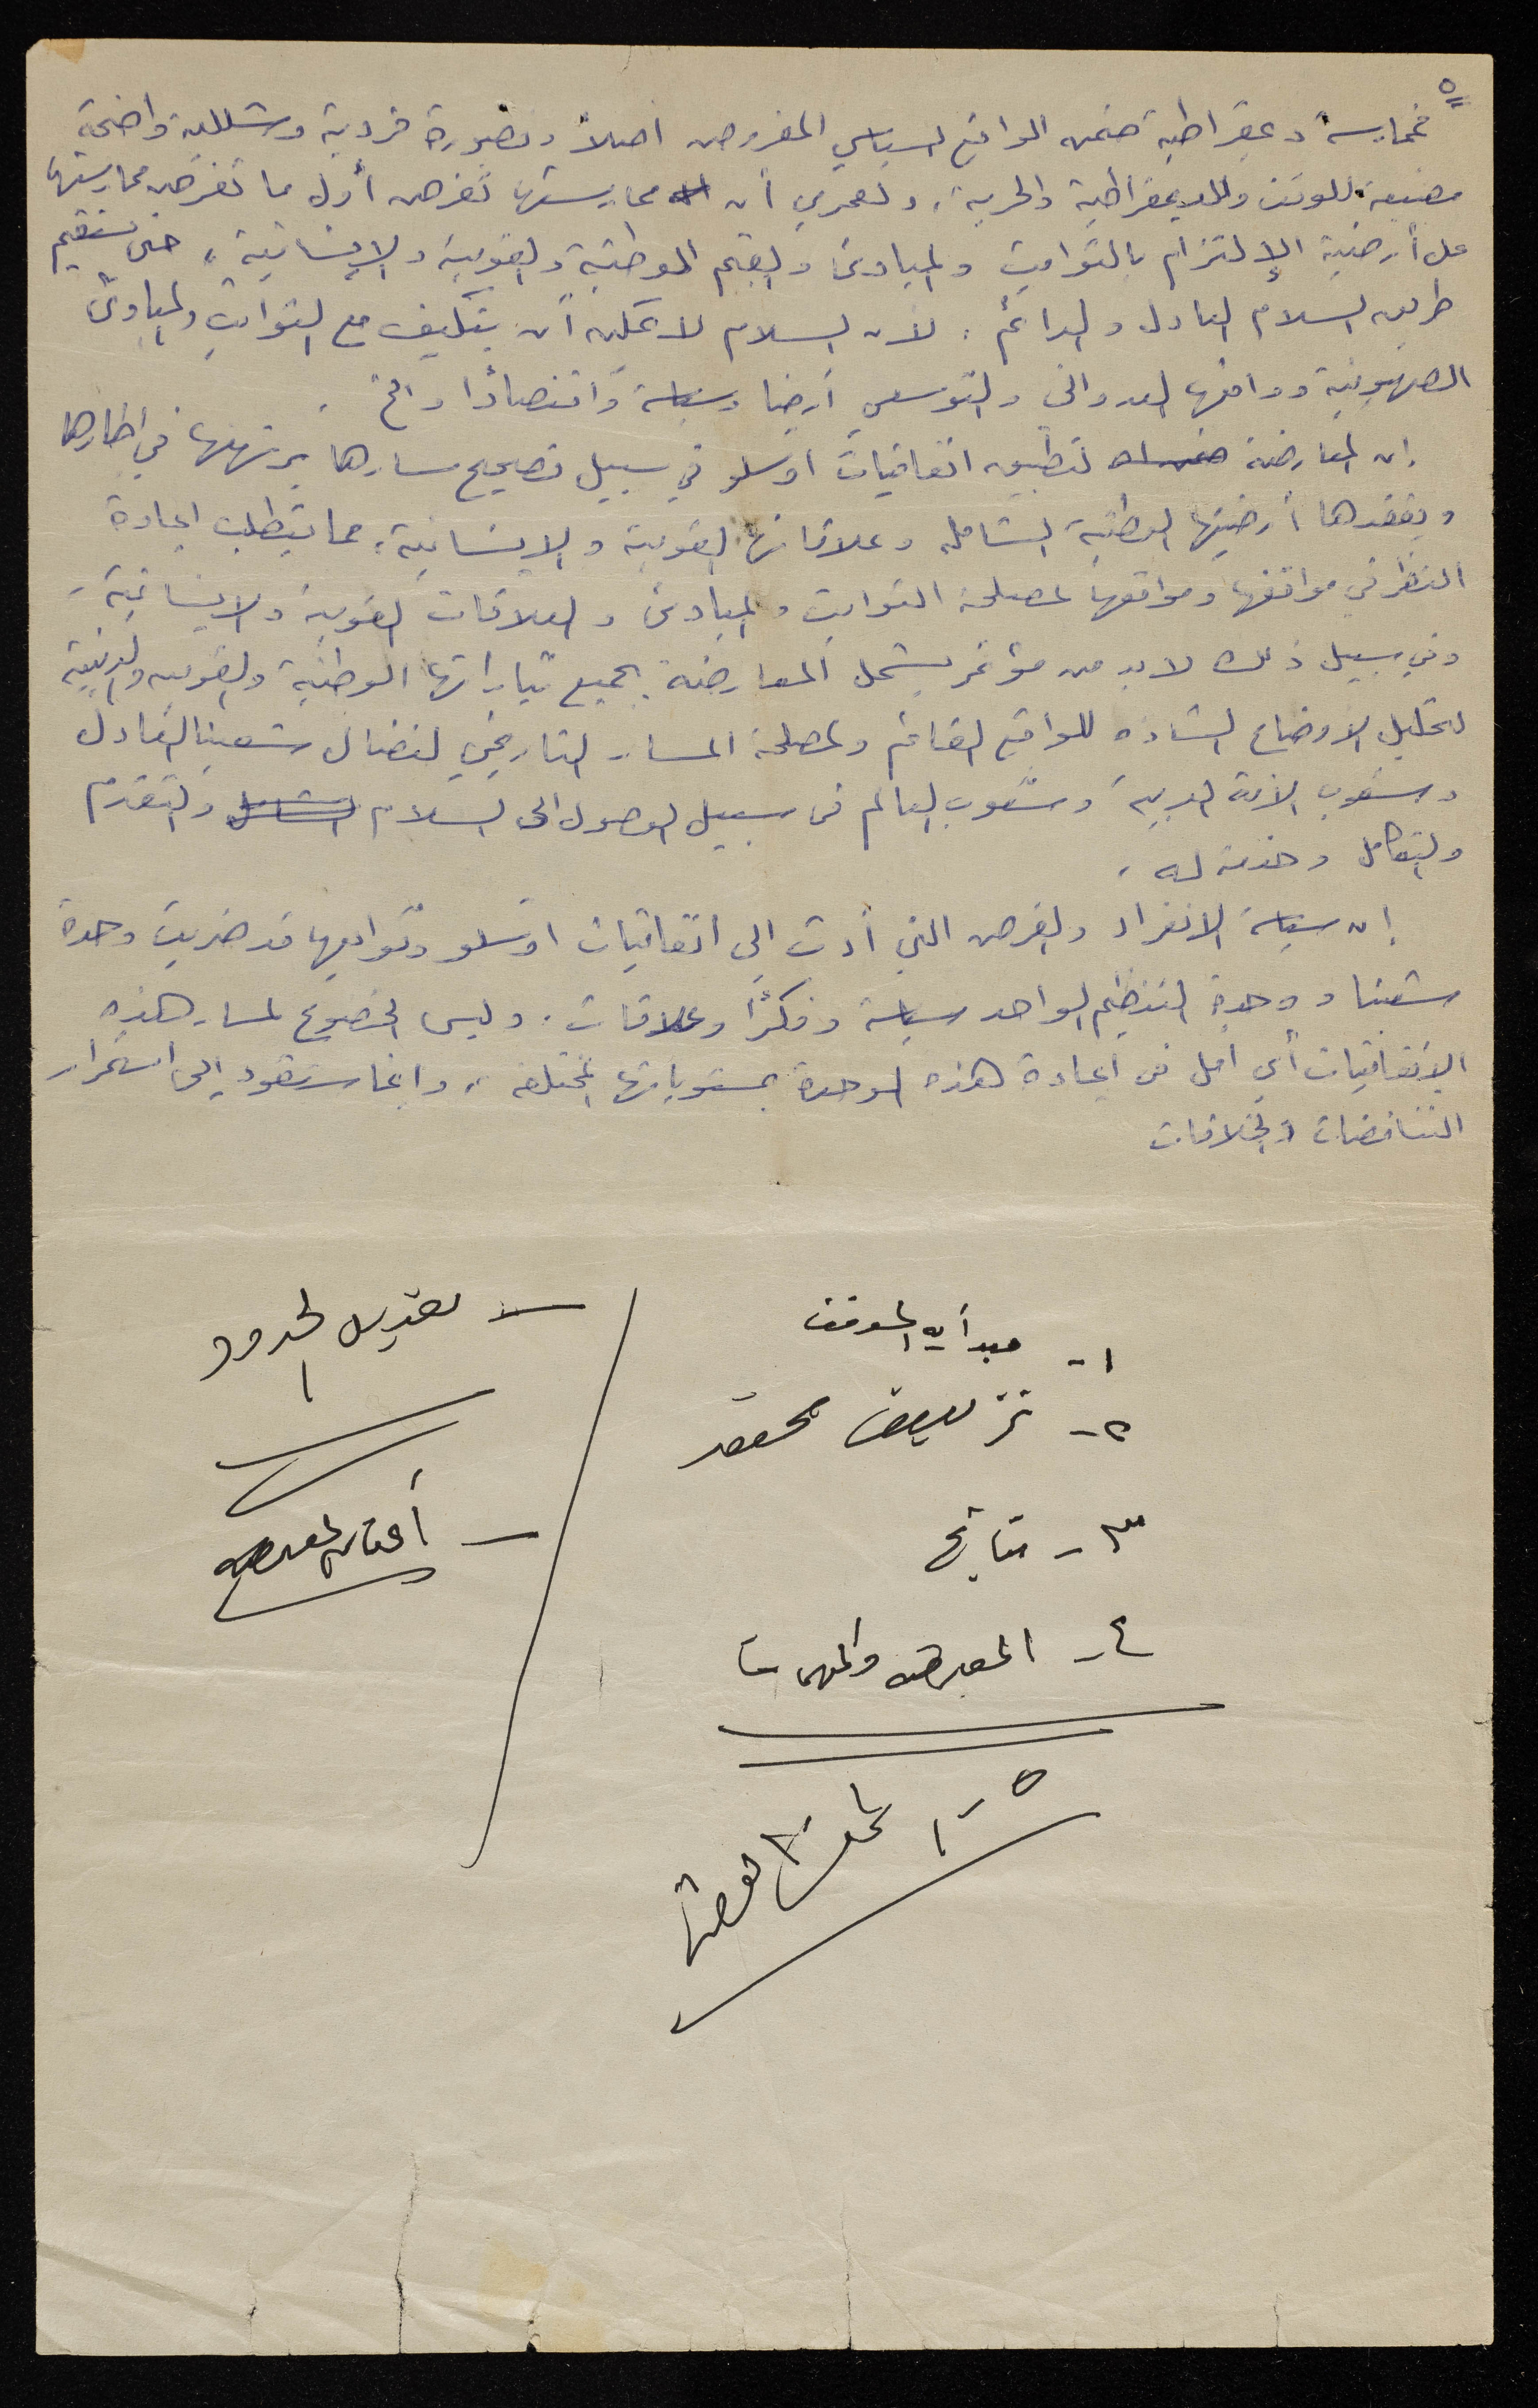 ٥
فممارسة ديمقراطية ضمن الواقع السياسي المفروض أصلاً وبصورة فردية وشللية واضحة
مضيعة للوقت وللديمقراطية والحرية، ولعمري أن ممارستها تفرض أول ما تفرض ممارستها
على أرضية الإلتزام بالثوابت والمبادئ والقيم الوطنية والقومية والإنسانية، حتى تستقيم
طريق السلام العادل والدائم، لأن السلام لا يمكن أن يتكيف مع الثوابت والمبادئ
الصهيونية وواقعها العدواني والتوسعي أرضا وسياسة واقتصادًا والخ.
إن المعارضة لتطبيق اتفاقيات اوسلو في سبيل تصحيح مسارها يرتهنها في اطارها
ويفقدها أرضيتها الوطنية الشاملة وعلاقاتها القومية والإنسانية، مما يتطلب اعادة
النظر في مواقفها ومواقعها لمصلحة الثوابت والمبادئ والعلاقات القومية والانسانية.
وفي سبيل ذلك لابد من مؤتمر يشمل المعارضة بجميع تياراتها الوطنية والقومية والدينية
لتحليل الاوضاع الشاذه للواقع القائم ولمصلحة المسار التاريخي لنضال شعبنا العادل
وشعوب الأمة العربية وشعوب العالم في سبيل الوصول الى السلام والتقدم
والتكامل وخدمة له.
إن سياسة الانفراد والفرض التي أدت إلى اتفاقيات اوسلو وتوابعها قد ضربت وحدة
شعبنا ووحدة التنظيم الواحد سياسة وفكرًا وعلاقات. وليس الخضوع لمسار هذه
الإتفاقيات أي امل في اعادة هذه الوحدة بمستوياتها المختلفة، وانما ستقود إلى استمرار
التناقضات والخلافات
١- مبدأية الموقف
٢-
٣- نتائج
٤- المعارضه والمهمات
٥-
— تعديل الحدود
—